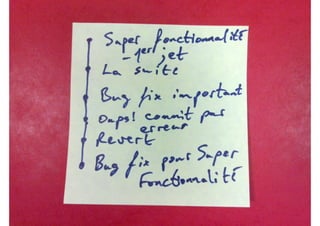 Super fonctionnalité
- 1er jet
La suite
Bug fix important
Oops! commit par
erreur
Revert
Bug fix pour Super
Fonctionnalité